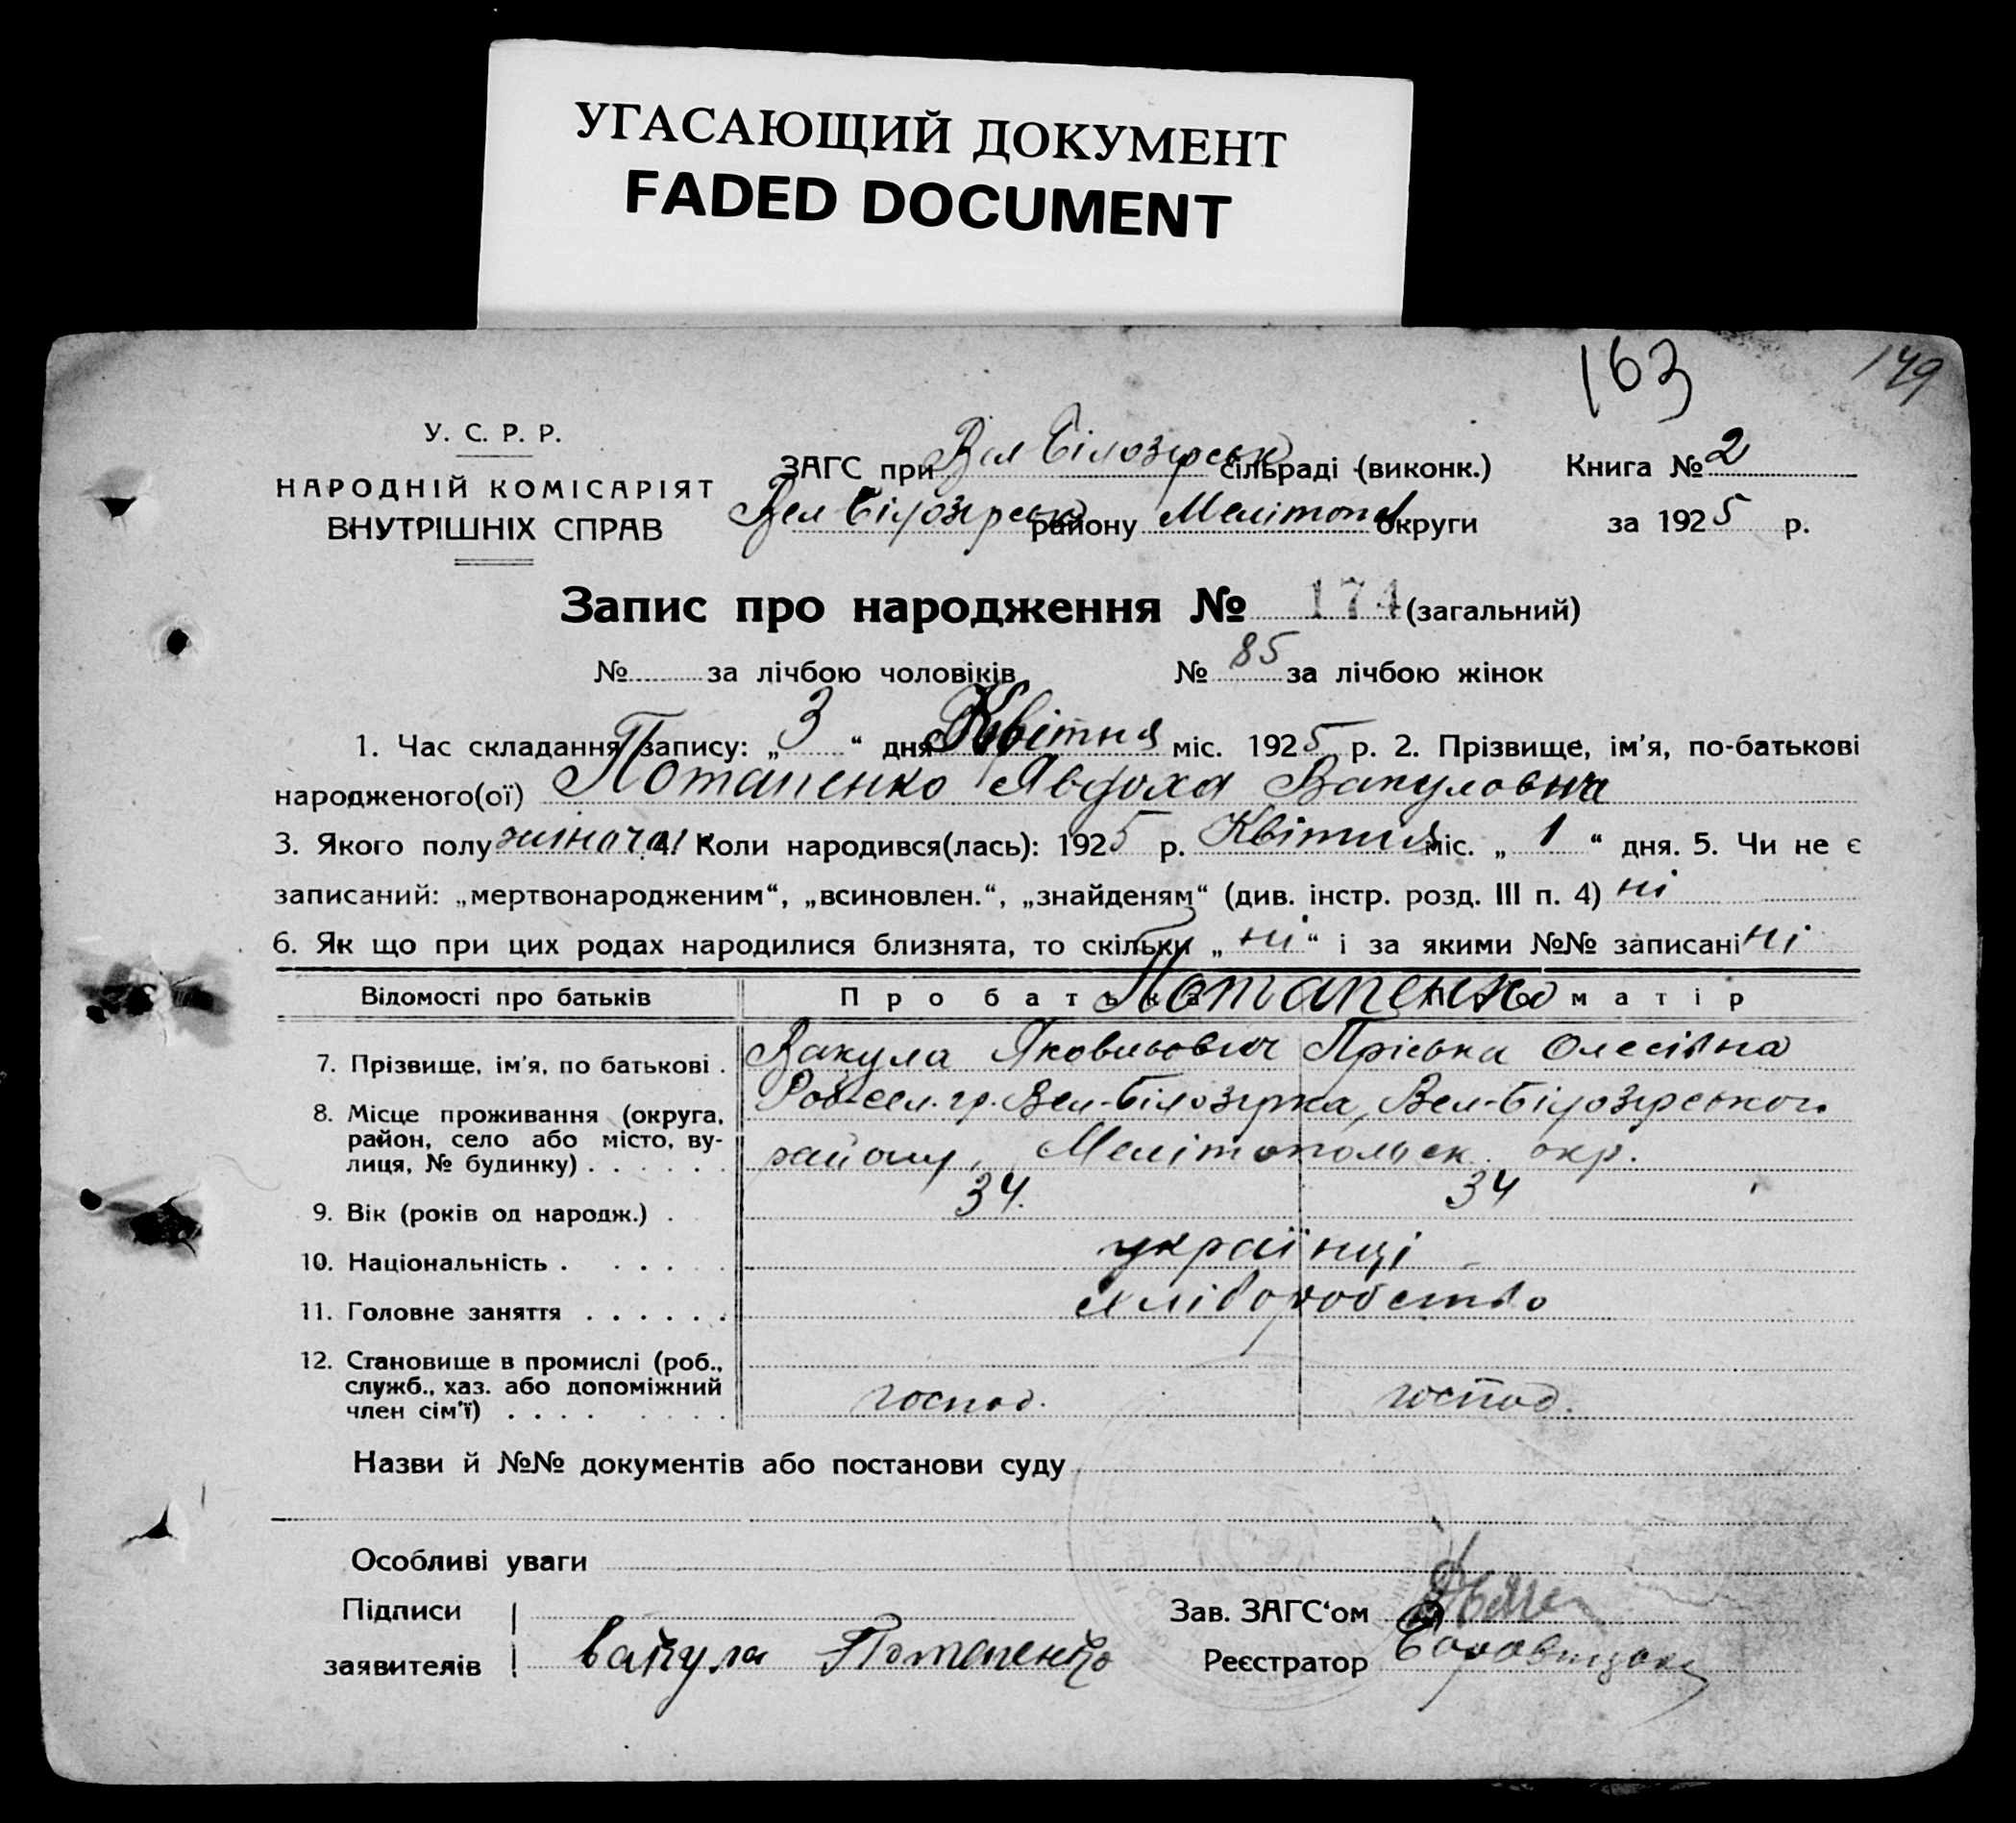 УГАСАЮЩИЙ ДОКУМЕНТ
FADED DOCUMENT
163 149
У. С. Р. Р.
НАРОДНІЙ КОМІСАРІЯТ
ВНУТРІШНІХ СПРАВ
ЗАГС при Вел Білозерськ сільраді (виконк.) Книга № 2
Вел Білозерськ району Мелітоп округи за 1925 р.
Запис про народження № 174 (загальний)
№ за лічбою чоловіків № 85 за лічбою жінок
1. Час складання запису: „ 3 “ дня Квітня міс. 1925 р. 2. Прізвище, ім'я, по-батькові
народженого(ої) Потапенко Явдоха Вакуловна
3. Якого полу жіноча 4. Коли народився(лась): 1925 р. Квітня міс. „ 1 “ дня. 5. Чи не є
записаний: „мертвонародженим“, „всиновлен.“, „знайденям“ (див. інстр. розд. III п. 4) ні
6. Як що при цих родах народилися близнята, то скільки „ ні “ і за якими №№ записані ні
Відомості про батьків Про батька Потапенко матір
7. Прізвище, ім'я, по батькові . Вакула Яковльович Пріська Олесівна
8. Місце проживання (округа, район, село або місто, вулиця, № будинку) . . . . . . сел. гр. Вел-Білозерка, Вел-Білозерського
району, Мелітопольск. окр.
9. Вік (років од народж.) . 34. 34
10. Національність . . . . . . українці
11. Головне заняття . . . . . . хліборобство
12. Становище в промислі (роб.,
служб., хаз. або допоміжний
член сім'ї) . . . . . . . . господ. господ.
Назви й №№ документів або постанови суду
Особливі уваги
Підписи Зав. ЗАГС‘ом
заявителів вакула Потапенко Реєстратор